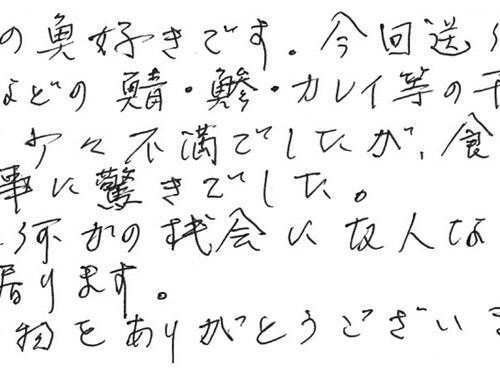 の魚好きです。今回送り
などの鯖・鰺・カレイ等の干
少々不満でしたが、食
事に驚きでした。
何かの機会に友人な
居ります。
物をありがとうございま